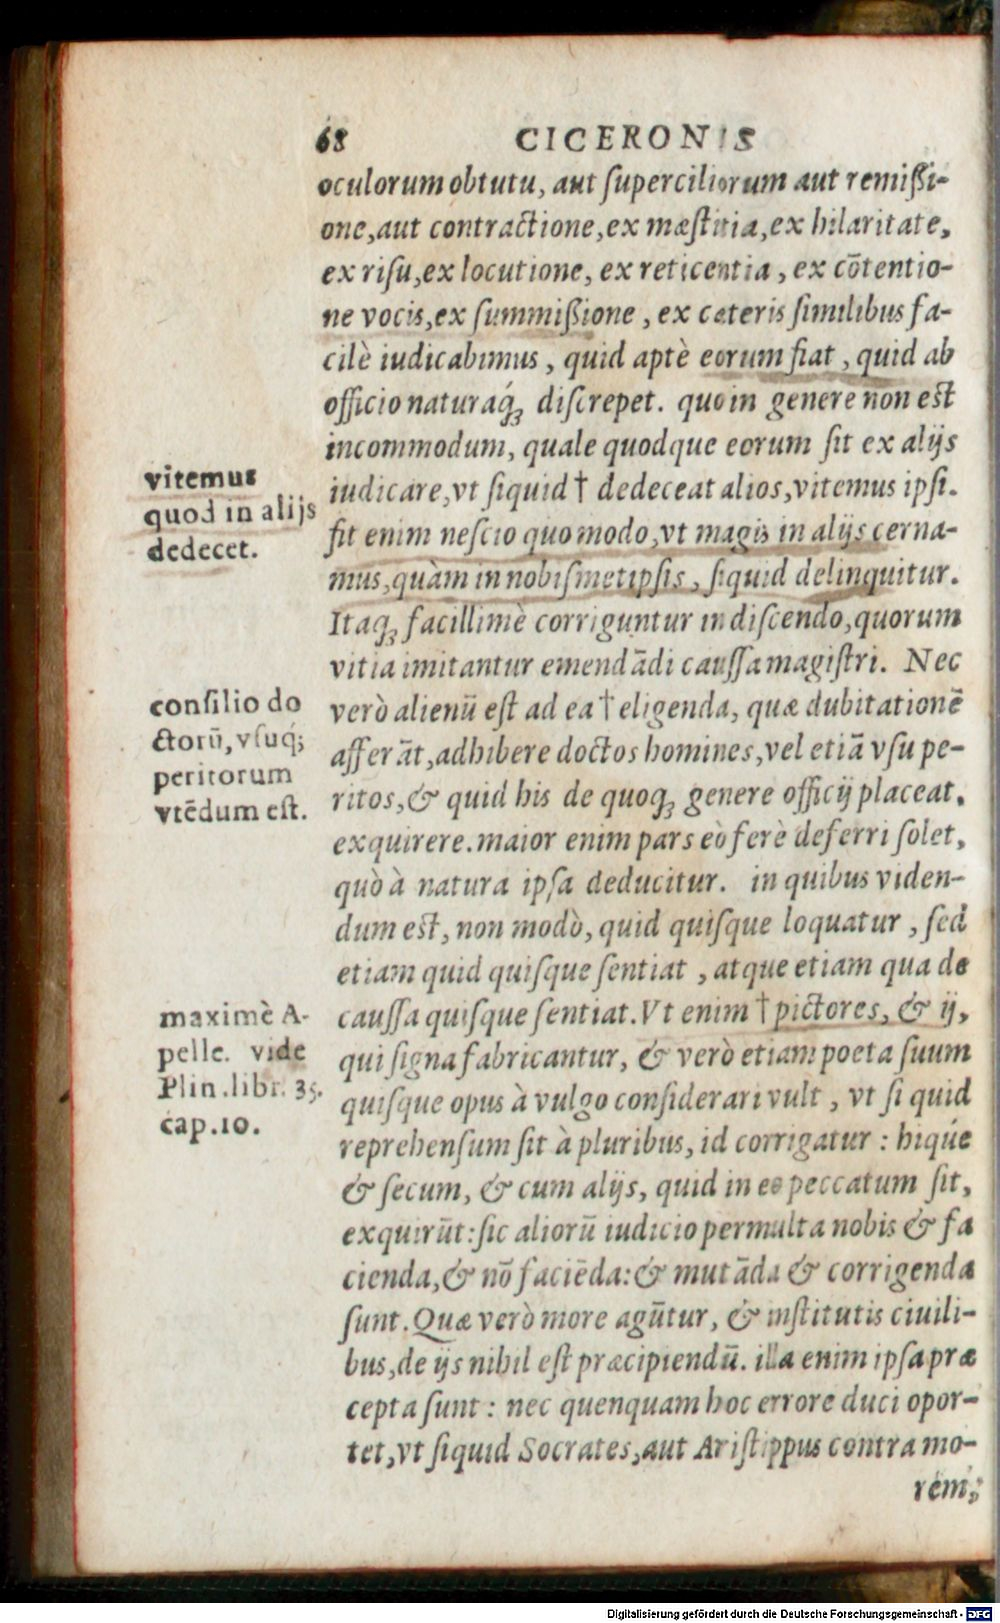 68 CICERONIS
oculorum obtutu, aut ſuperciliorum aut remiſſi-
one, aut contractione, ex mæſtitia, ex hilaritate,
ex riſu, ex locutione, ex reticentia, ex cõtentio-
ne vocis, ex ſummiſſione, ex cæteris ſimilibus fa-
cilè iudicabimus, quid aptè eorum fiat, quid ab
officio naturaq́ꝫ diſcrepet. quo in genere non eſt
incommodum, quale quodque eorum ſit ex alijs
iudicare, vt ſiquid † dedeceat alios, vitemus ipſi.
fit enim neſcio quo modo, vt magis in alijs cerna-
mus, quàm in nobiſmetipſis, ſiquid delinquitur.
Itaqꝫ facillimè corriguntur in diſcendo, quorum
vitia imitantur emendãdi cauſſa magiſtri. Nec
verò alienũ eſt ad ea † eligenda, quæ dubitationẽ
afferãt, adhibere doctos homines, vel etiã vſu pe-
ritos, & quid his de quoqꝫ genere officij placeat,
exquirere. maior enim pars eò ferè deferri ſolet,
quò à natura ipſa deducitur. in quibus viden-
dum eſt, non modò, quid quiſque loquatur, ſed
etiam quid quiſque ſentiat, atque etiam qua de
cauſſa quiſque ſentiat. Vt enim † pictores, & ij,
qui ſigna fabricantur, & verò etiam poetæ ſuum
quiſque opus à vulgo conſiderari vult, vt ſi quid
reprehenſum ſit à pluribus, id corrigatur: hiqúe
& ſecum, & cum alijs, quid in eo peccatum ſit,
exquirũt: ſic aliorũ iudicio permulta nobis & fa
cienda, & nõ faciẽda: & mutãda & corrigenda
ſunt. Quæ verò more agũtur, & inſtitutis ciuili-
bus, de ijs nihil eſt præcipiendũ. illa enim ipſa præ
cepta ſunt: nec quenquam hoc errore duci opor-
tet, vt ſiquid Socrates, aut Ariſtippus contra mo-
rem,
vitemus
quod in alijs
dedecet.
conſilio do
ctorũ, vſuq́;
peritorum
vtẽdum eſt.
maximè A-
pelle. vide
Plin. libr. 35.
cap. 10.
Digitalisierung gefördert durch die Deutsche Forschungsgemeinschaft - DFG